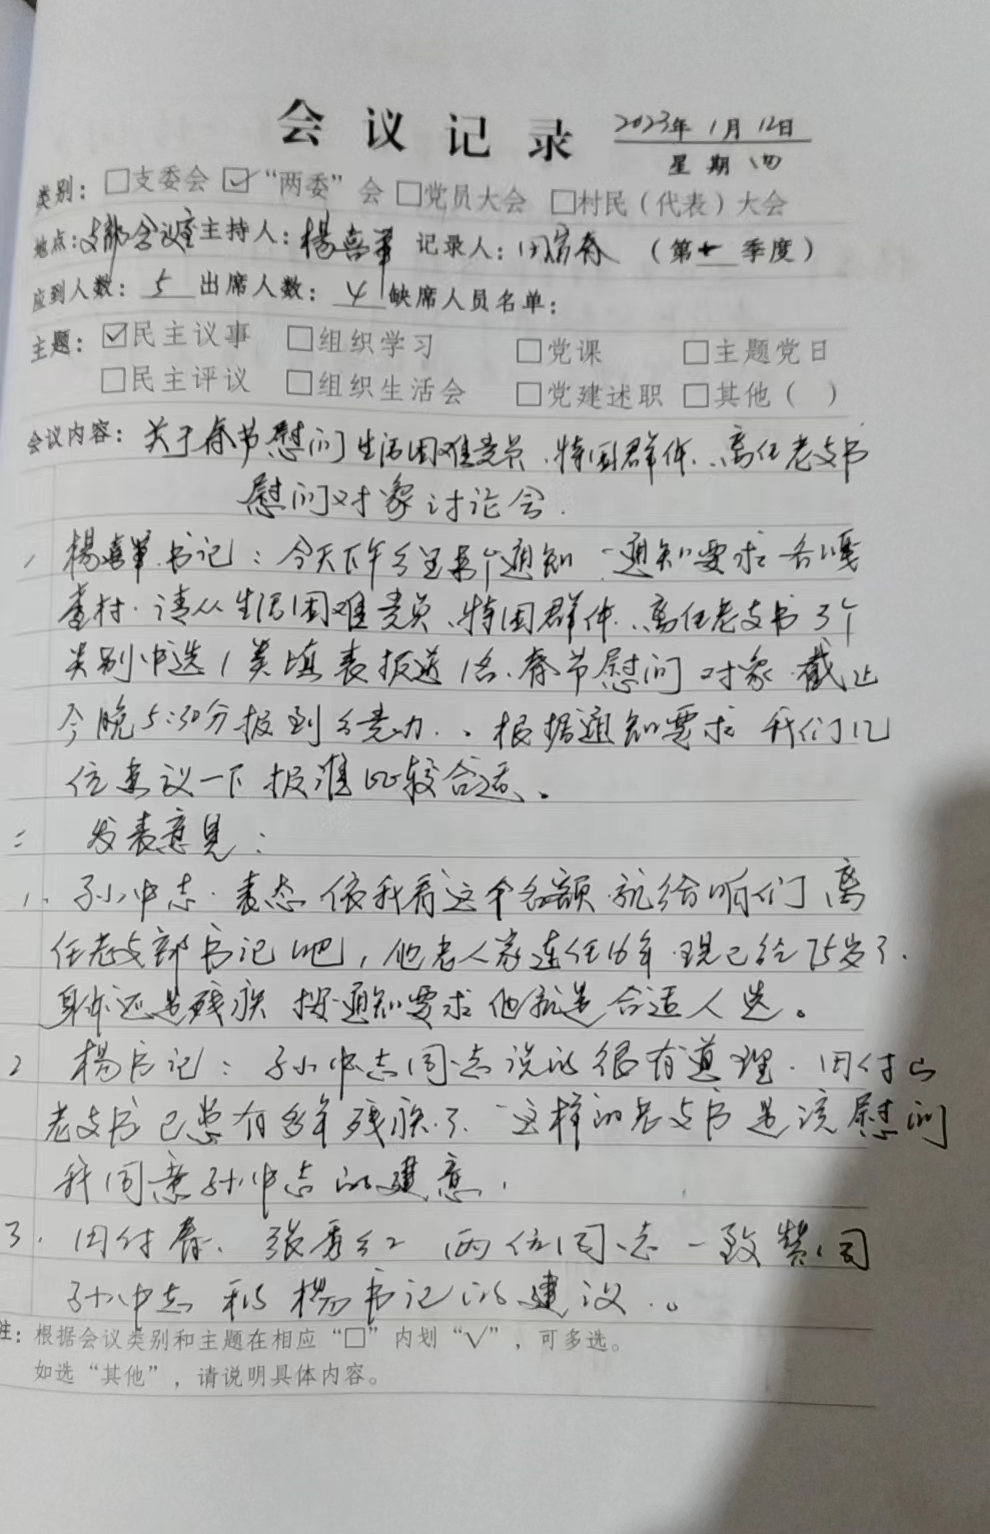 会议记录 2023年1月12日
星期四
类别：□支委会 ☑“两委”会 □党员大会 □村民（代表）大会
地点：支部会议室 主持人：楊喜軍 记录人：田付春 （第一季度）
应到人数：5 出席人数：4 缺席人员名单：
主题：☑民主议事 □组织学习 □党课 □主题党日
□民主评议 □组织生活会 □党建述职 □其他（ ）
会议内容：关于春节慰问生活困难党员、特困群体、离任老支书
慰问对象讨论会.
一 楊喜軍书记：今天下午乡里来个通知 通知要求各嘎
查村.请从生活困难党员、特困群体、离任老支书3个
类别中选1类填表报送1名.春节慰问对象 截止
今晚5:30分报到乡党办.。根据通知要求 我们几
位来议一下报谁比较合适。
二 发表意见：
1. 孙中志.表态 依我看这个名额.就给咱们离
任老支部书记吧，他老人家连任16年.现已经75岁了.
身体还是残疾 按通知要求他就是合适人选。
2 楊书记：孙中志同志说的很有道理.田付山
老支书已患有多年残疾.了.这样的老支书是该慰问
我同意孙中志的建意.
3. 田付春、张秀红 两位同志一致赞同
孙中志和楊书记的建议.。
注：根据会议类别和主题在相应“□”内划“√”，可多选。
如选“其他”，请说明具体内容。